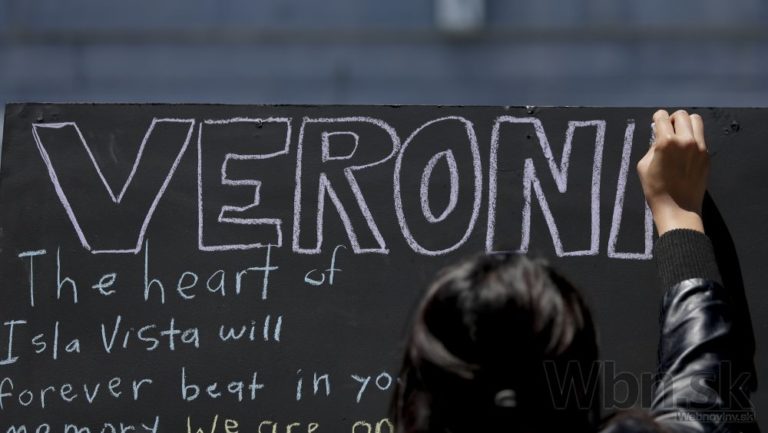 VERONI
The heart of
Isla Vista will
forever beat in yo
memory We are on
Wbn.sk
Webnoviny.sk